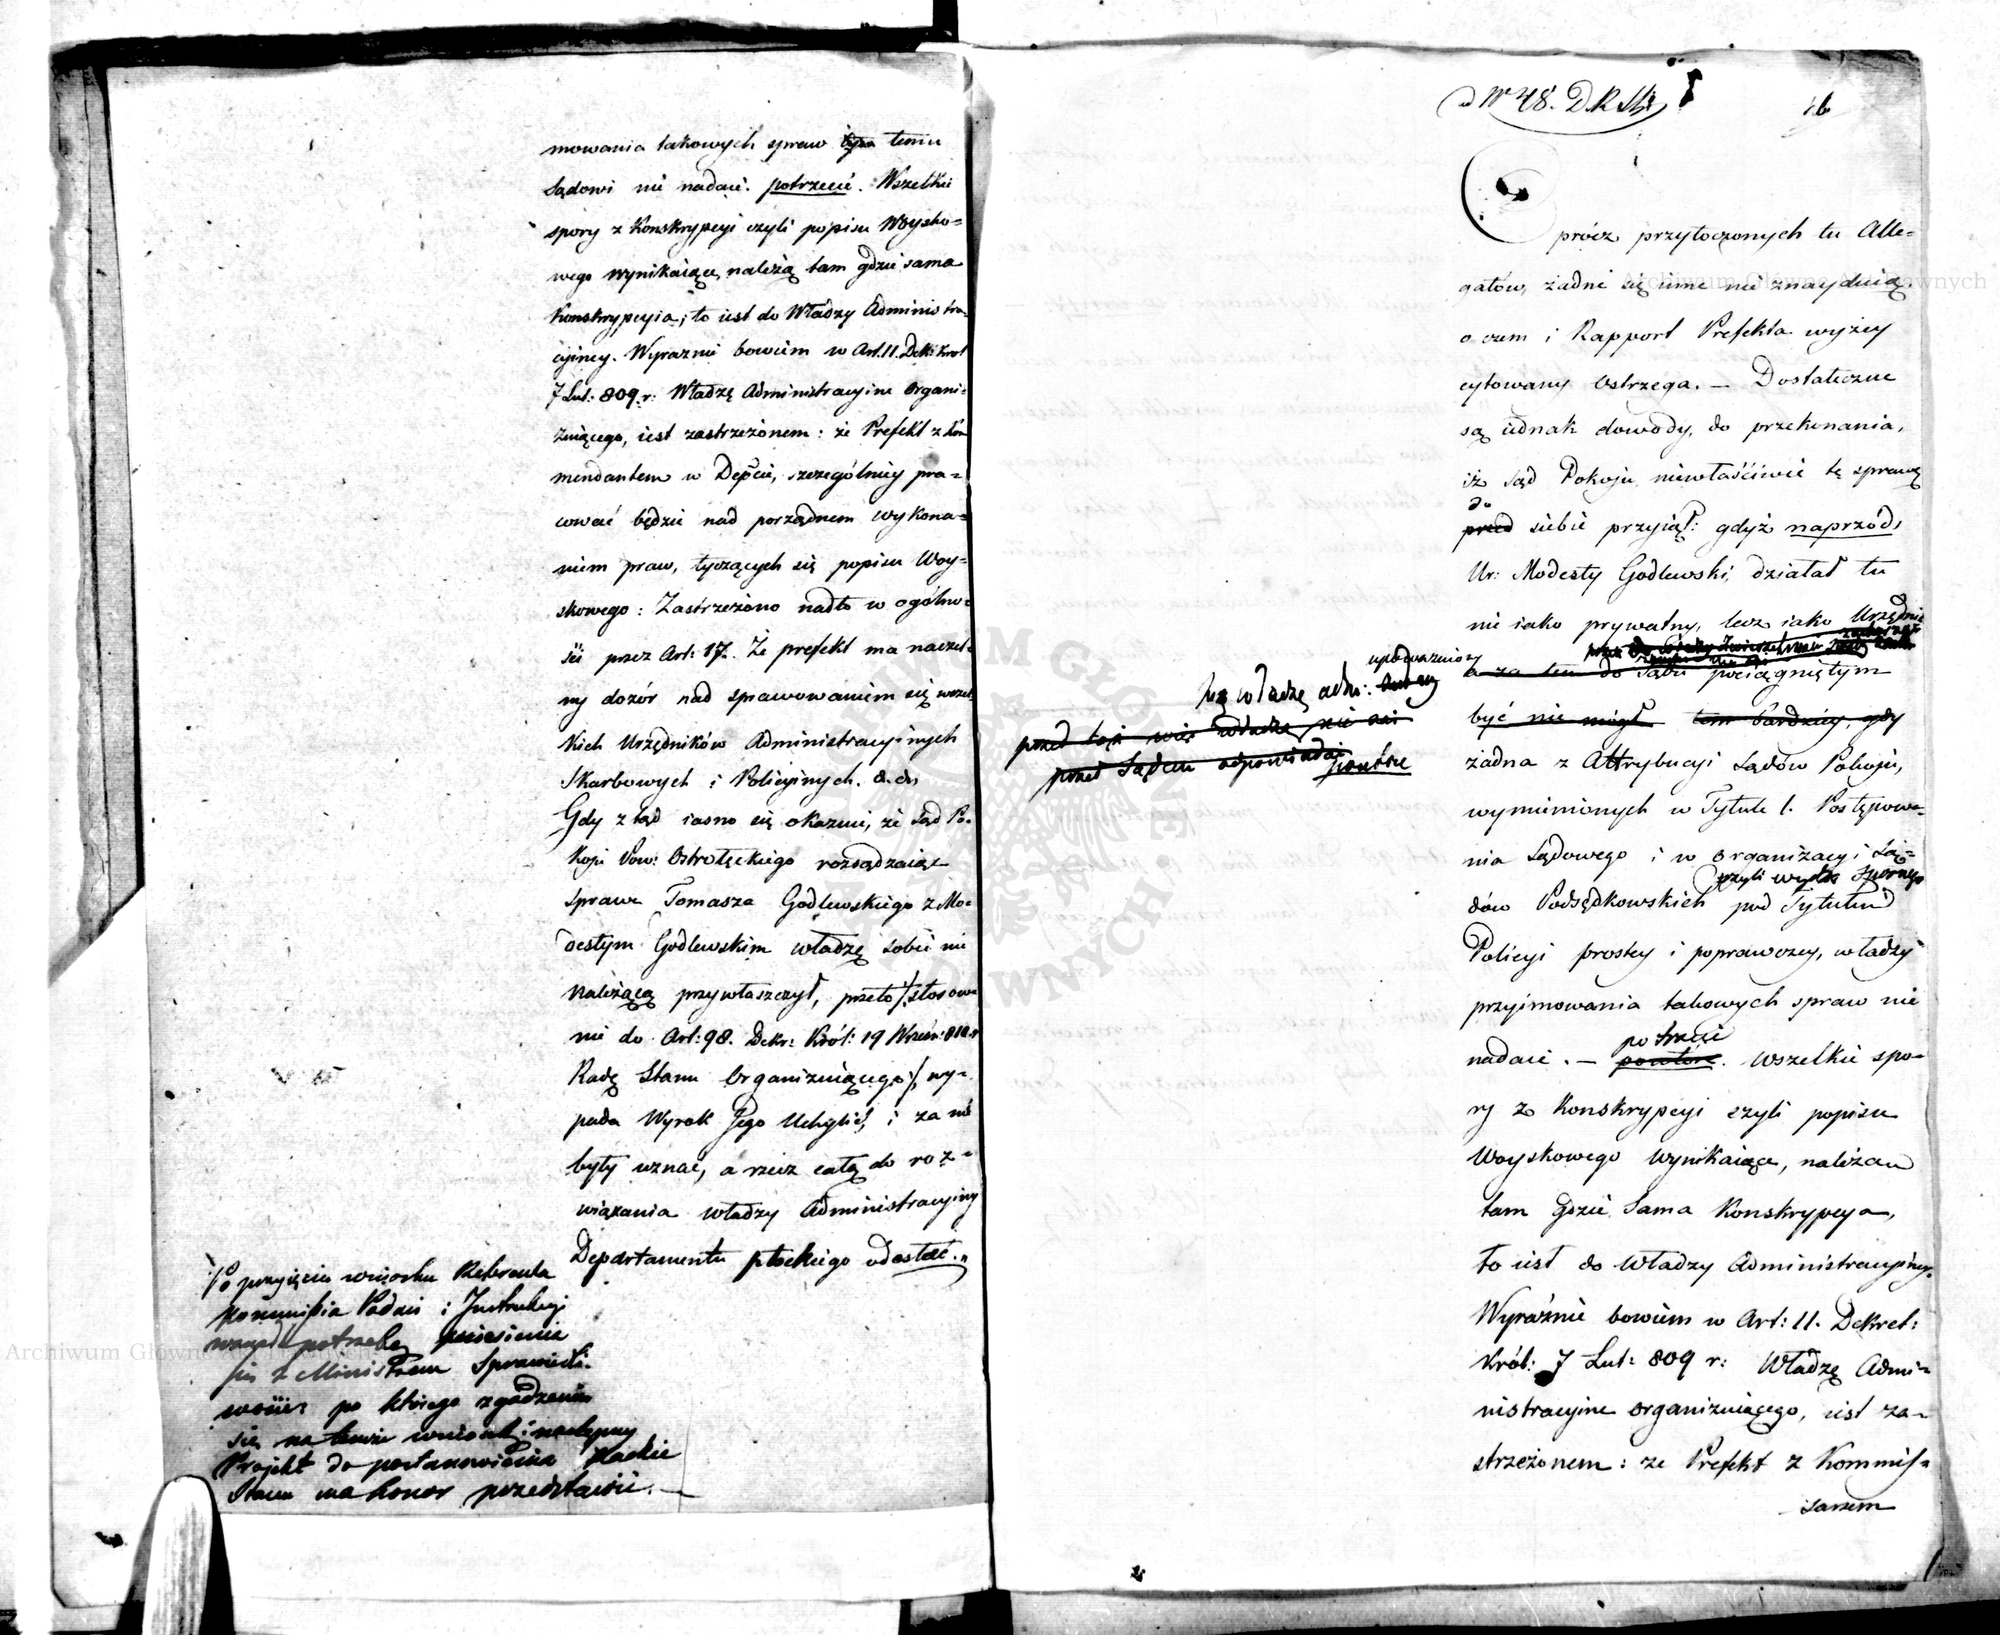 mowania takowych spraw temu
Sądowi nie nadaie. potrzecie. Wszelkie
spory z Konskrypcyi czyli popisu Woysko=
wego wynikaiące, należą tam gdzie sama
Konskrypcyia; to iest do Władzy Administra=
cyiney. Wyraznie bowiem w Art. 11. Dek: Krol
7 Lut: 809 r: Władzę Administracyine organi=
zuiącego, iest zastrzeżonem: że Prefekt z Kom
mendantem w Depcie, szczególniey pra=
cować będzie nad porządnem wykona=
niem praw, tyczących się popisu Woy=
skowego: Zastrzeżono nadto w ogólno=
ści przez Art: 17. Że prefekt ma naczel=
ny dozór nad sprawowaniem się wszel
kich Urzędników Administracyinych
Skarbowych i Policyinych. &. &.
Gdy ztąd iasno się okazuie, że Sąd Po=
koju Pow: Ostrołęckiego rozsądzaiąc
sprawę Tomasza Godlewskiego z Mo=
destym Godlewskim władzę sobie nie
należącą przywłaszczył, przeto /:stosow
nie do Art: 98. Dekr: Król: 19 Wrześ: 810 r
Radę Stanu organizuiącego:/, wy=
pada Wyrok Jego Uchylić, i za nie
były uznać, a rzecz całą do roz=
wiązania władzy Administracyiney
Departamentu płockiego odesłać.„
Po przyięciu wniosku Referenta
Kommissia Podań i Instrukcyi
potrzebę zniesienia
się z Ministrem Sprawiedli=
wości po którego zgodzeniu
się na tenże wniosek następny
Projekt do postanowienia Radzie
Stanu ma honor przedstawić. —
ad Nr 48. D.R.St:
Oprócz przytoczonych tu Alle=
gatów, żadne się inne nie znayduią
o czem i Rapport Prefekta wyżey
cytowany ostrzega. — Dostateczne
są iednak dowody, do przekonania,
iż Sąd Pokoju niewłaściwie tę sprawę
do
przed siebie przyiął: gdyż naprzód,
Ur: Modesty Godlewski, działał tu
nie iako prywatny, lecz iako Urzędnik
upoważniony
a za tem do Sądu pociągniętym
być nie mógł tem bardziey, gdy
przed władzę
przed Sądem odpowiadać
powtóre
żadna z Attrybucyi Sądów Pokoju,
wymienionych w Tytule 1. Postępowa=
nia Sądowego i w organizacyi Są=
czyli wydz: Spornego
dów Podsędkowskich pod Tytułem
Policyi prostey i poprawczey, władzy
przyimowania takowych spraw nie
potrzecie
nadaie. — powtóre. Wszelkie spo=
ry z Konskrypcyi czyli popisu
Woyskowego wynikaiące, należą
tam gdzie Sama Konskrypcya,
to iest do władzy Administracyiney.
Wyraźnie bowiem w Art: 11. Dekret:
Król: 7 Lut: 809 r: Władzę Admi=
nistracyine organizuiącego, iest za=
strzeżonem: że Prefekt z Kommis=
sarzem
Archiwum Główne Akt Dawnych